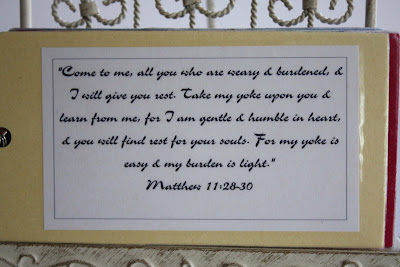 "Come to me, all you who are weary & burdened, &
I will give you rest. Take my yoke upon you &
learn from me, for I am gentle & humble in heart,
& you will find rest for your souls. For my yoke is
easy & my burden is light."
Matthew 11:28-30